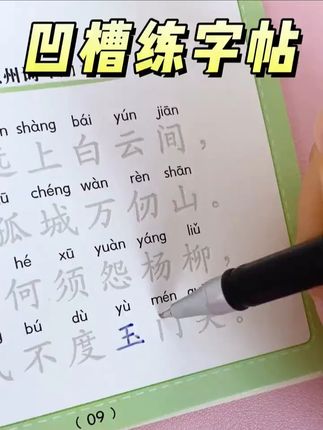 凹槽练字帖
州
shàng bái yún jiān
远上白云间，
chéng wàn rèn shān
孤城万仞山。
hé xū yuàn yáng liǔ
何须怨杨柳，
bú dù yù mén
不度玉门关。
(09)